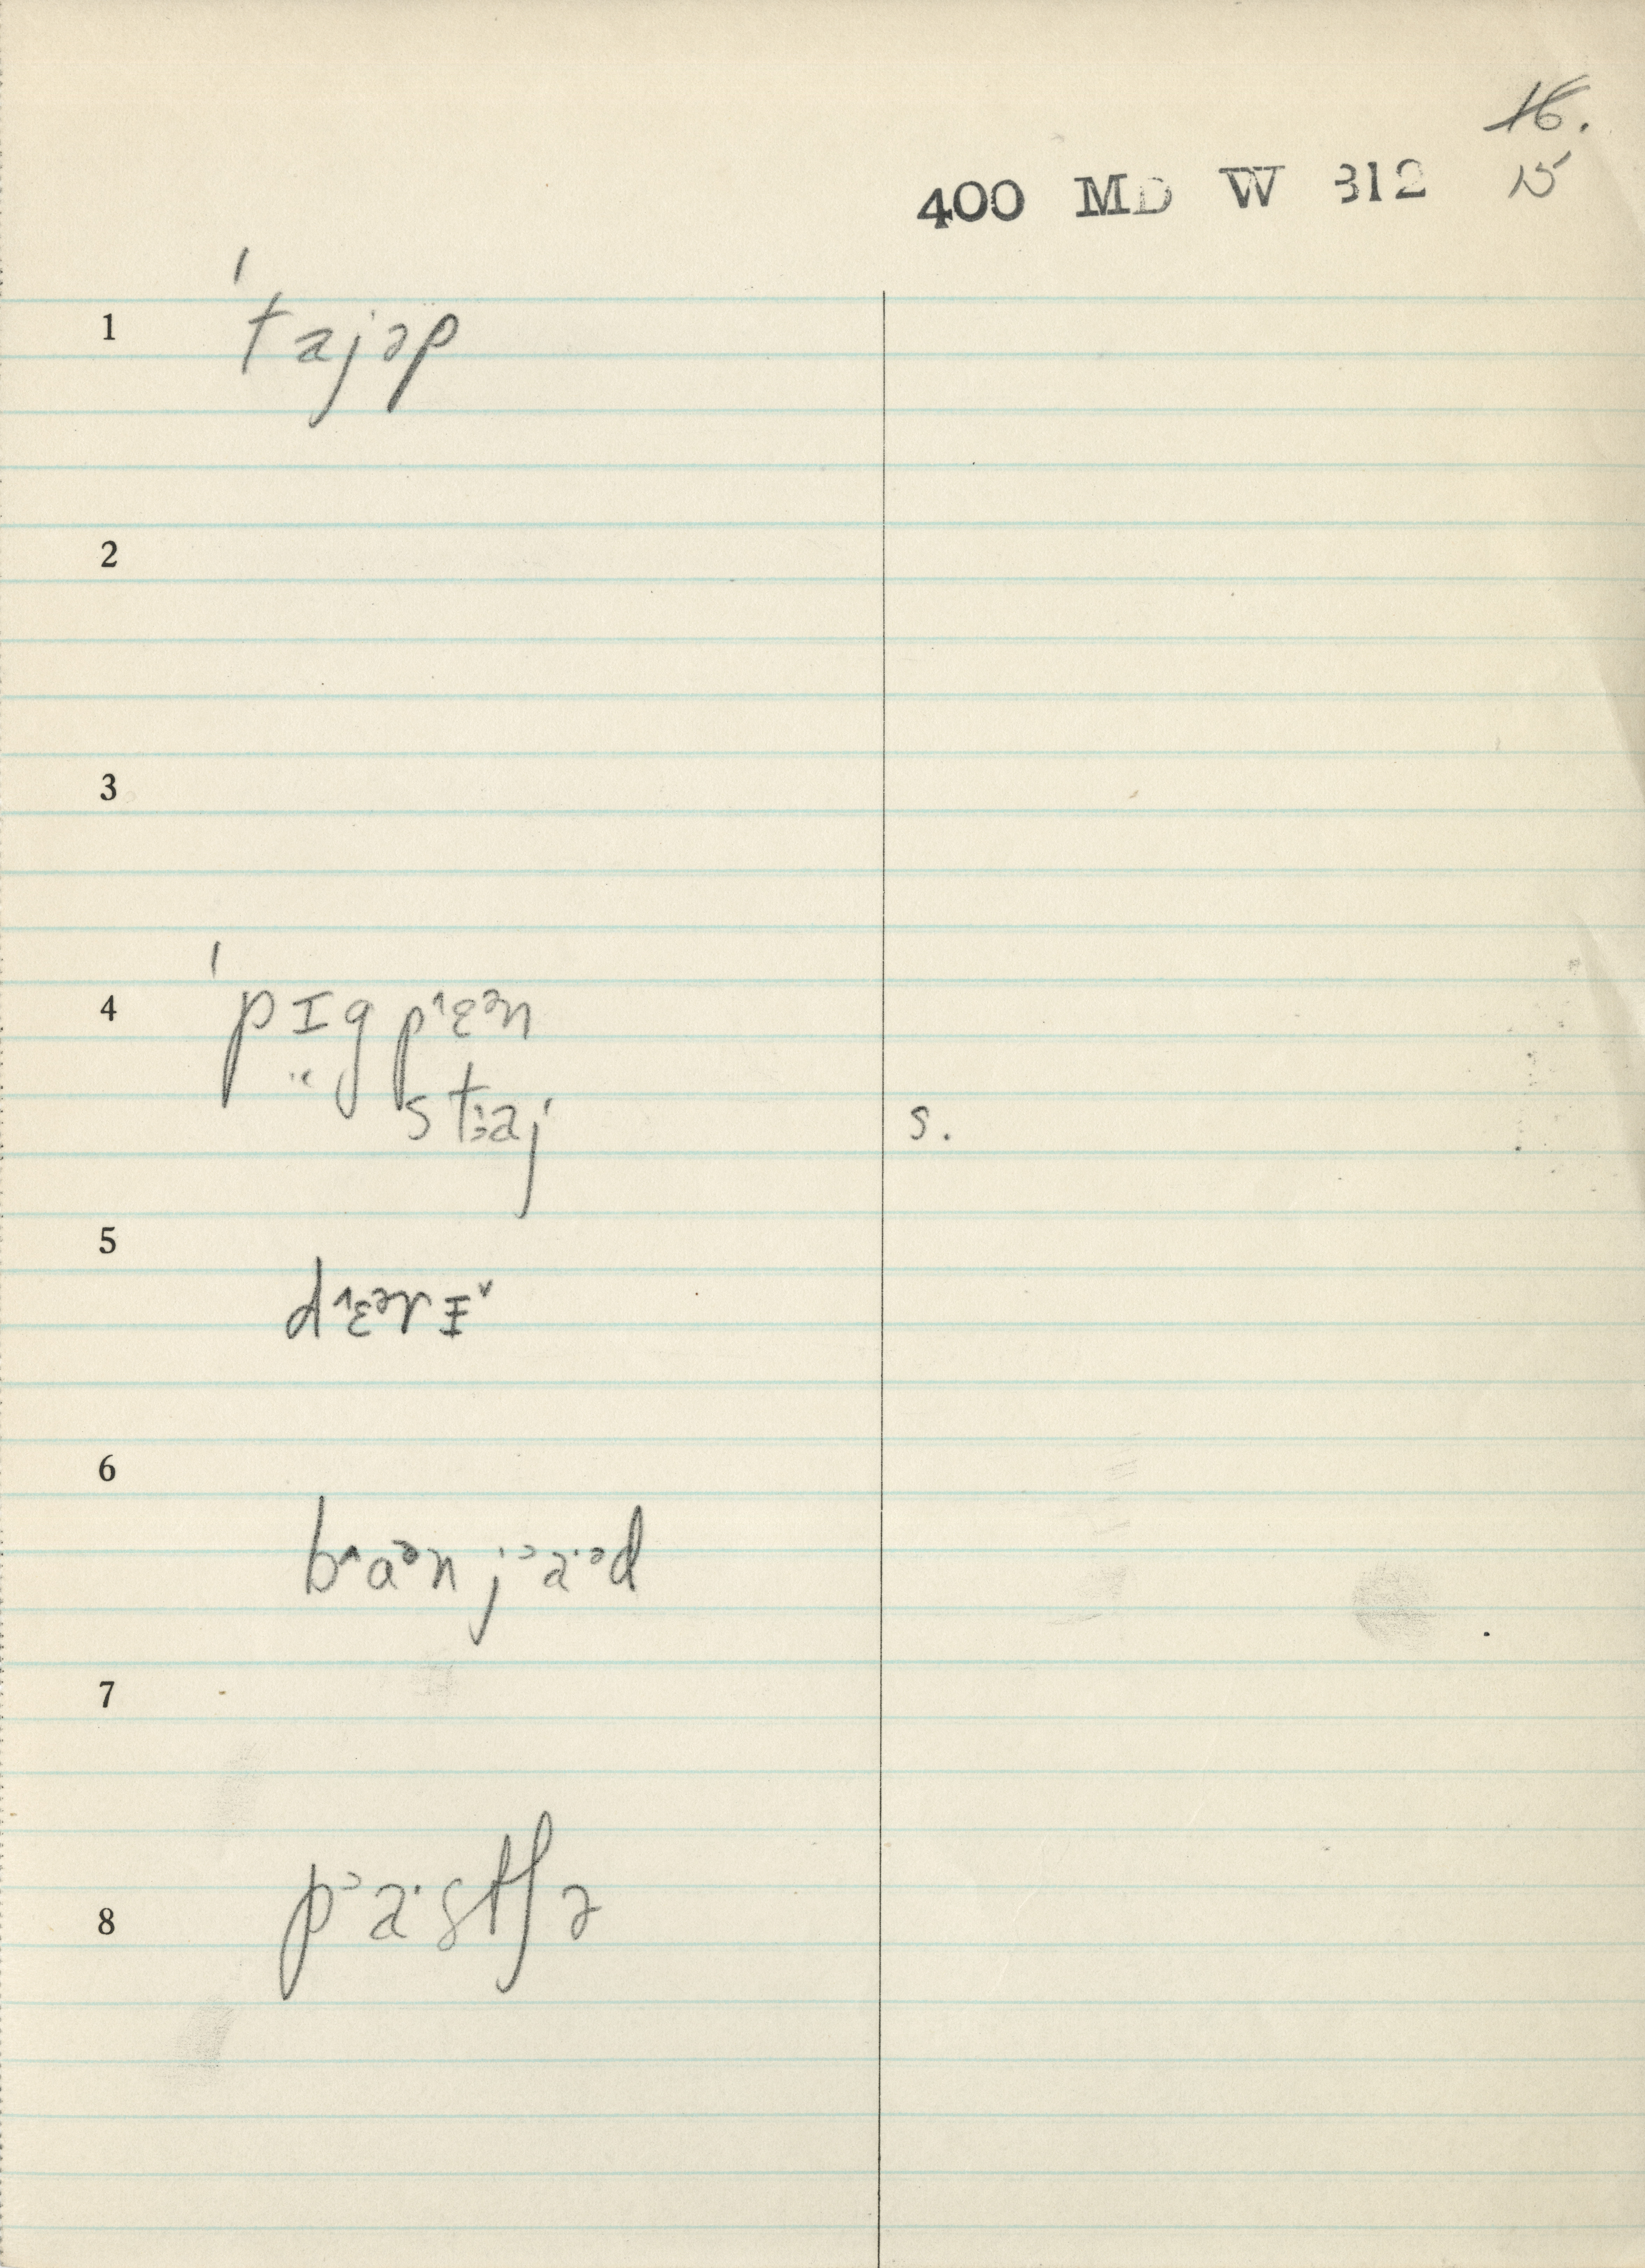 16.
400 MD W 312 15
1 ˈtajəp
2
3
4 ˈpɪgp˄ɛᵊn
staj s.
5 d˄ɛᵊrɪ˅
6 b˄aᵊn jᵓa·ᵊd
7
8 pᵓa·stʃə